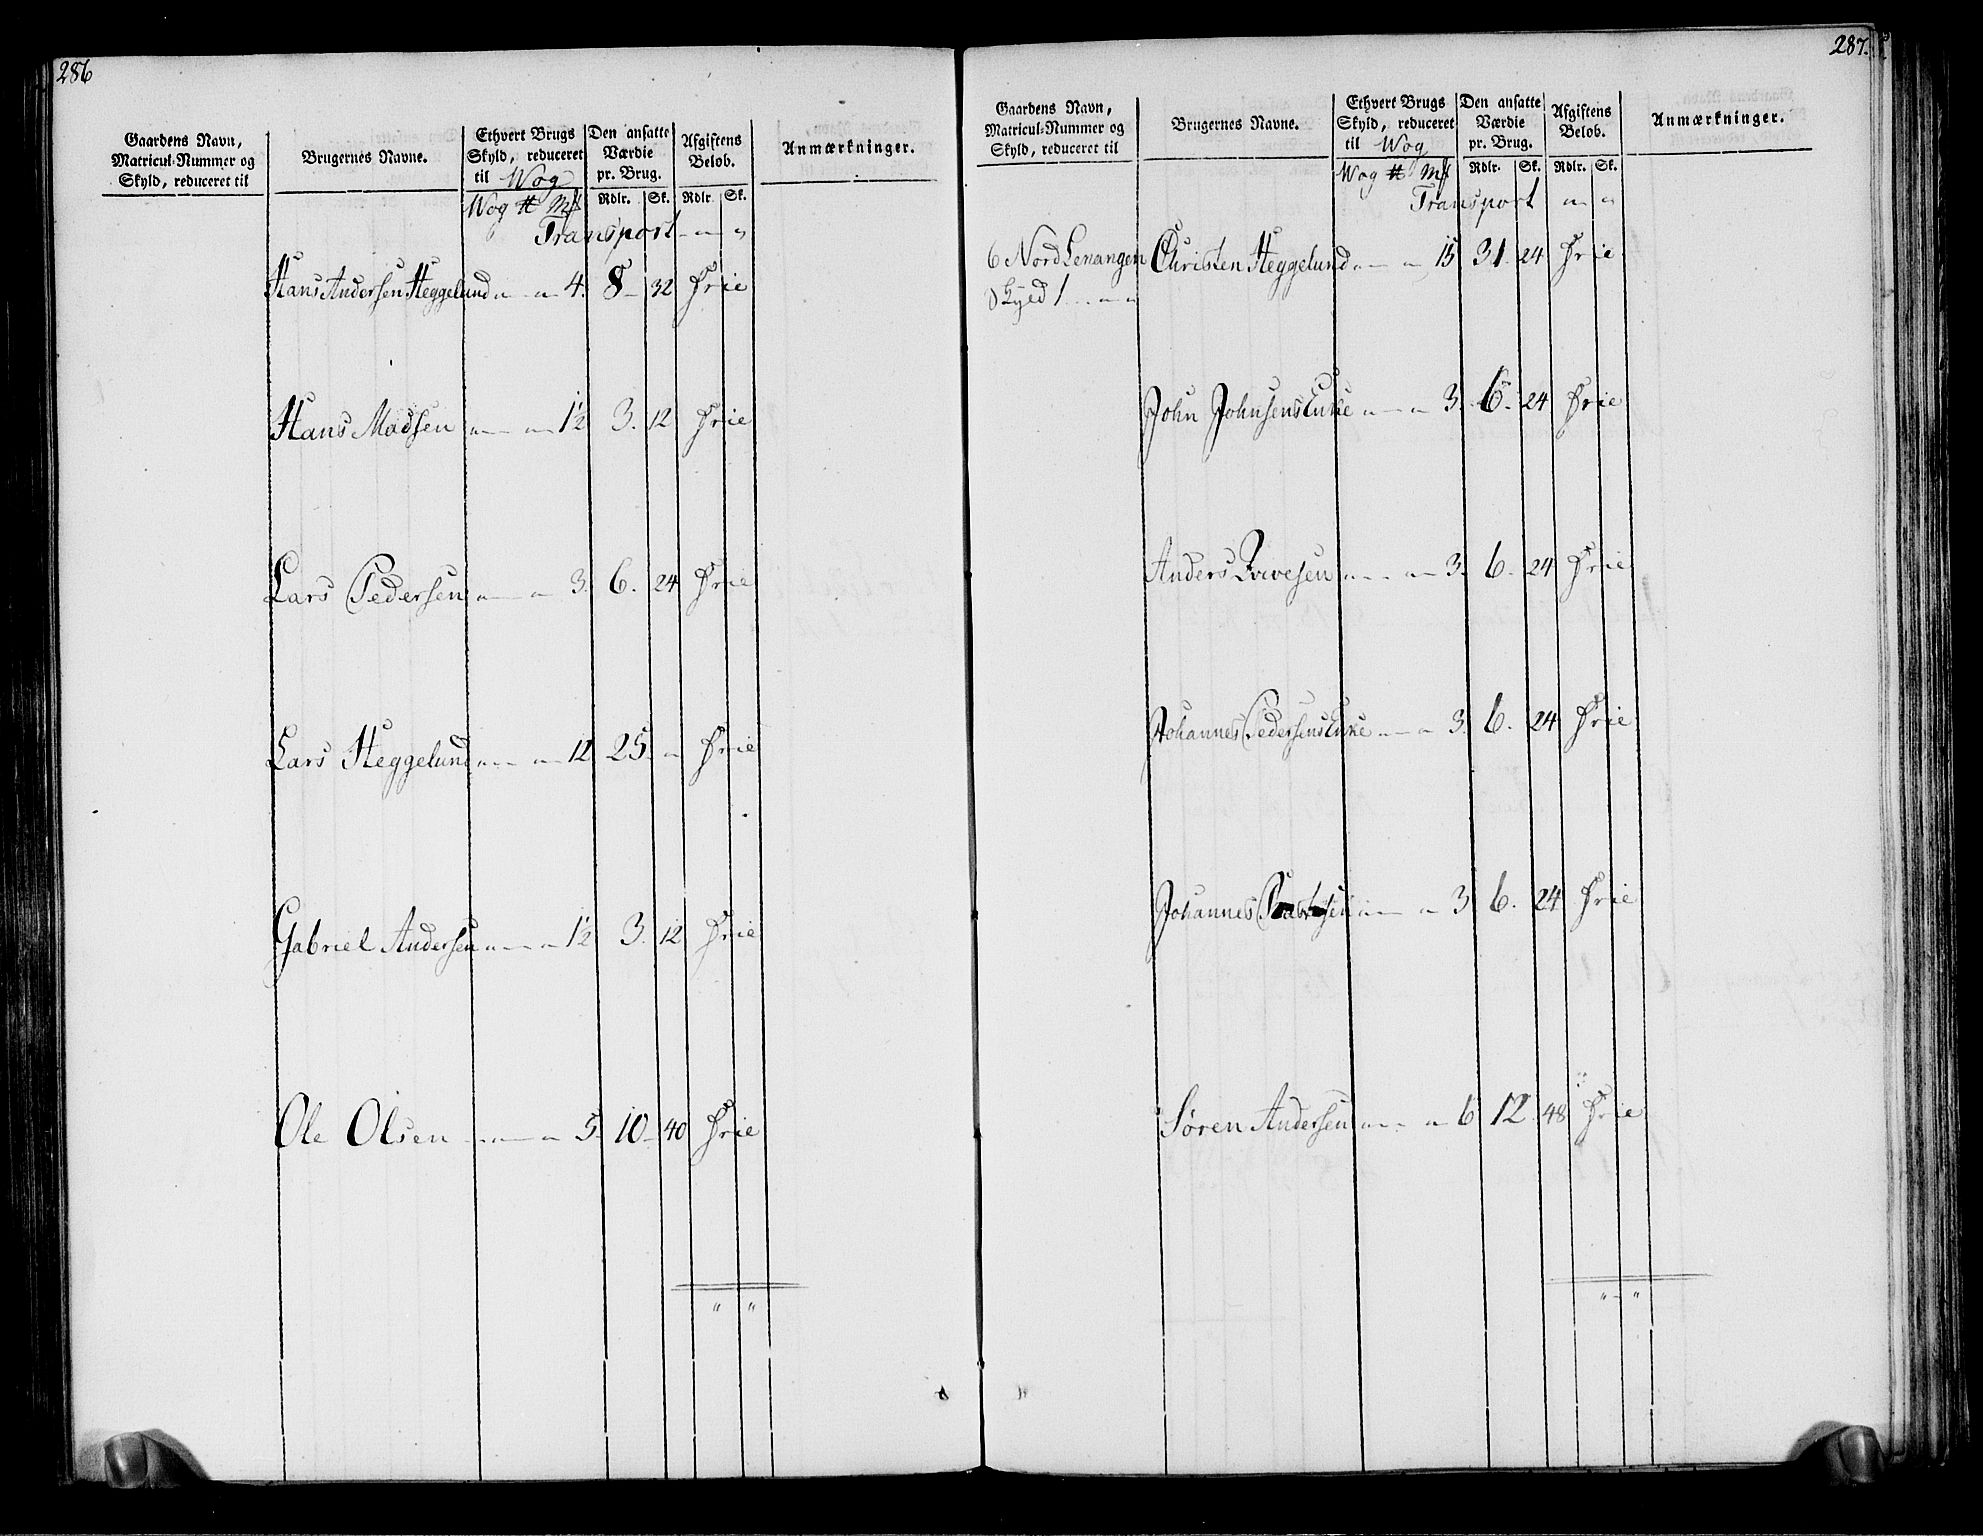 286
Gaardens Navn,
Matricul-Nummer og
Skyld, reduceret til
Brugernes Navne.
Ethvert Brugs
Skyld, reduceret
til Wog
Den ansatte
Værdie
pr. Brug.
Afgiftens
Belob.
Anmærkninger.
Wog ℔ Mk
Rdlr. Sk. Rdlr. Sk.
Transport - " - "
Hans Andersen Heggelund " - " 4. 8 - 32 Frie
Hans Madsen " - " 1½ 3. 12 Frie
Lars Pedersen " - " 3. 6. 24 Frie
Lars Heggelund " - " 12 25 - " Frie
Gabriel Andersen " - " 1½ 3. 12 Frie
Ole Olsen " - " 5 - 10 - 40 Frie
" "
287.
Gaardens Navn,
Matricul-Nummer og
Skyld, reduceret til
Brugernes Navne.
Ethvert Brugs
Skyld, reduceret
til Wog
Den ansatte
Værdie
pr. Brug.
Afgiftens
Belob.
Anmærkninger.
Wog ℔ Mk
Rdlr. Sk. Rdlr. Sk.
Transport " - "
6 Nord Lenangen Christen Heggelund " - " 15 31 - 24 Frie
Skyld 1 - " - "
John Johnsens Enke " - " 3. 6. 24 Frie
Anders Iversen " - " 3. 6. 24 Frie
Johannes Pedersens Enke " - " 3. 6. 24 Frie
Johannes " - " 3 6. 24 Frie
Søren Andersen " - " 6 12 48 Frie
" - "